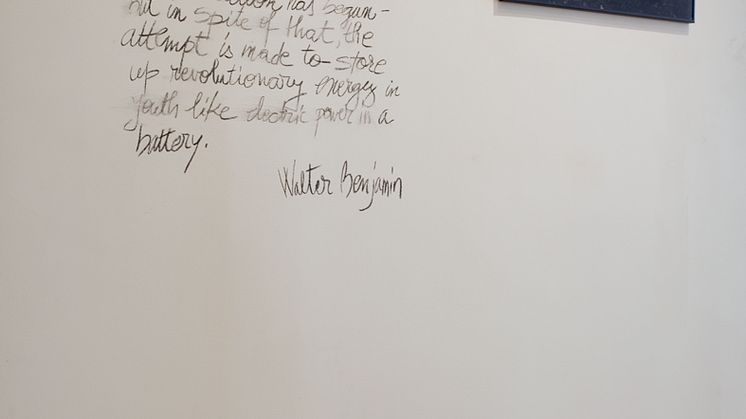 has begun-
but in spite of that, the
attempt is made to store
up revolutionary energy in
youth like electric power in a
battery.
Walter Benjamin